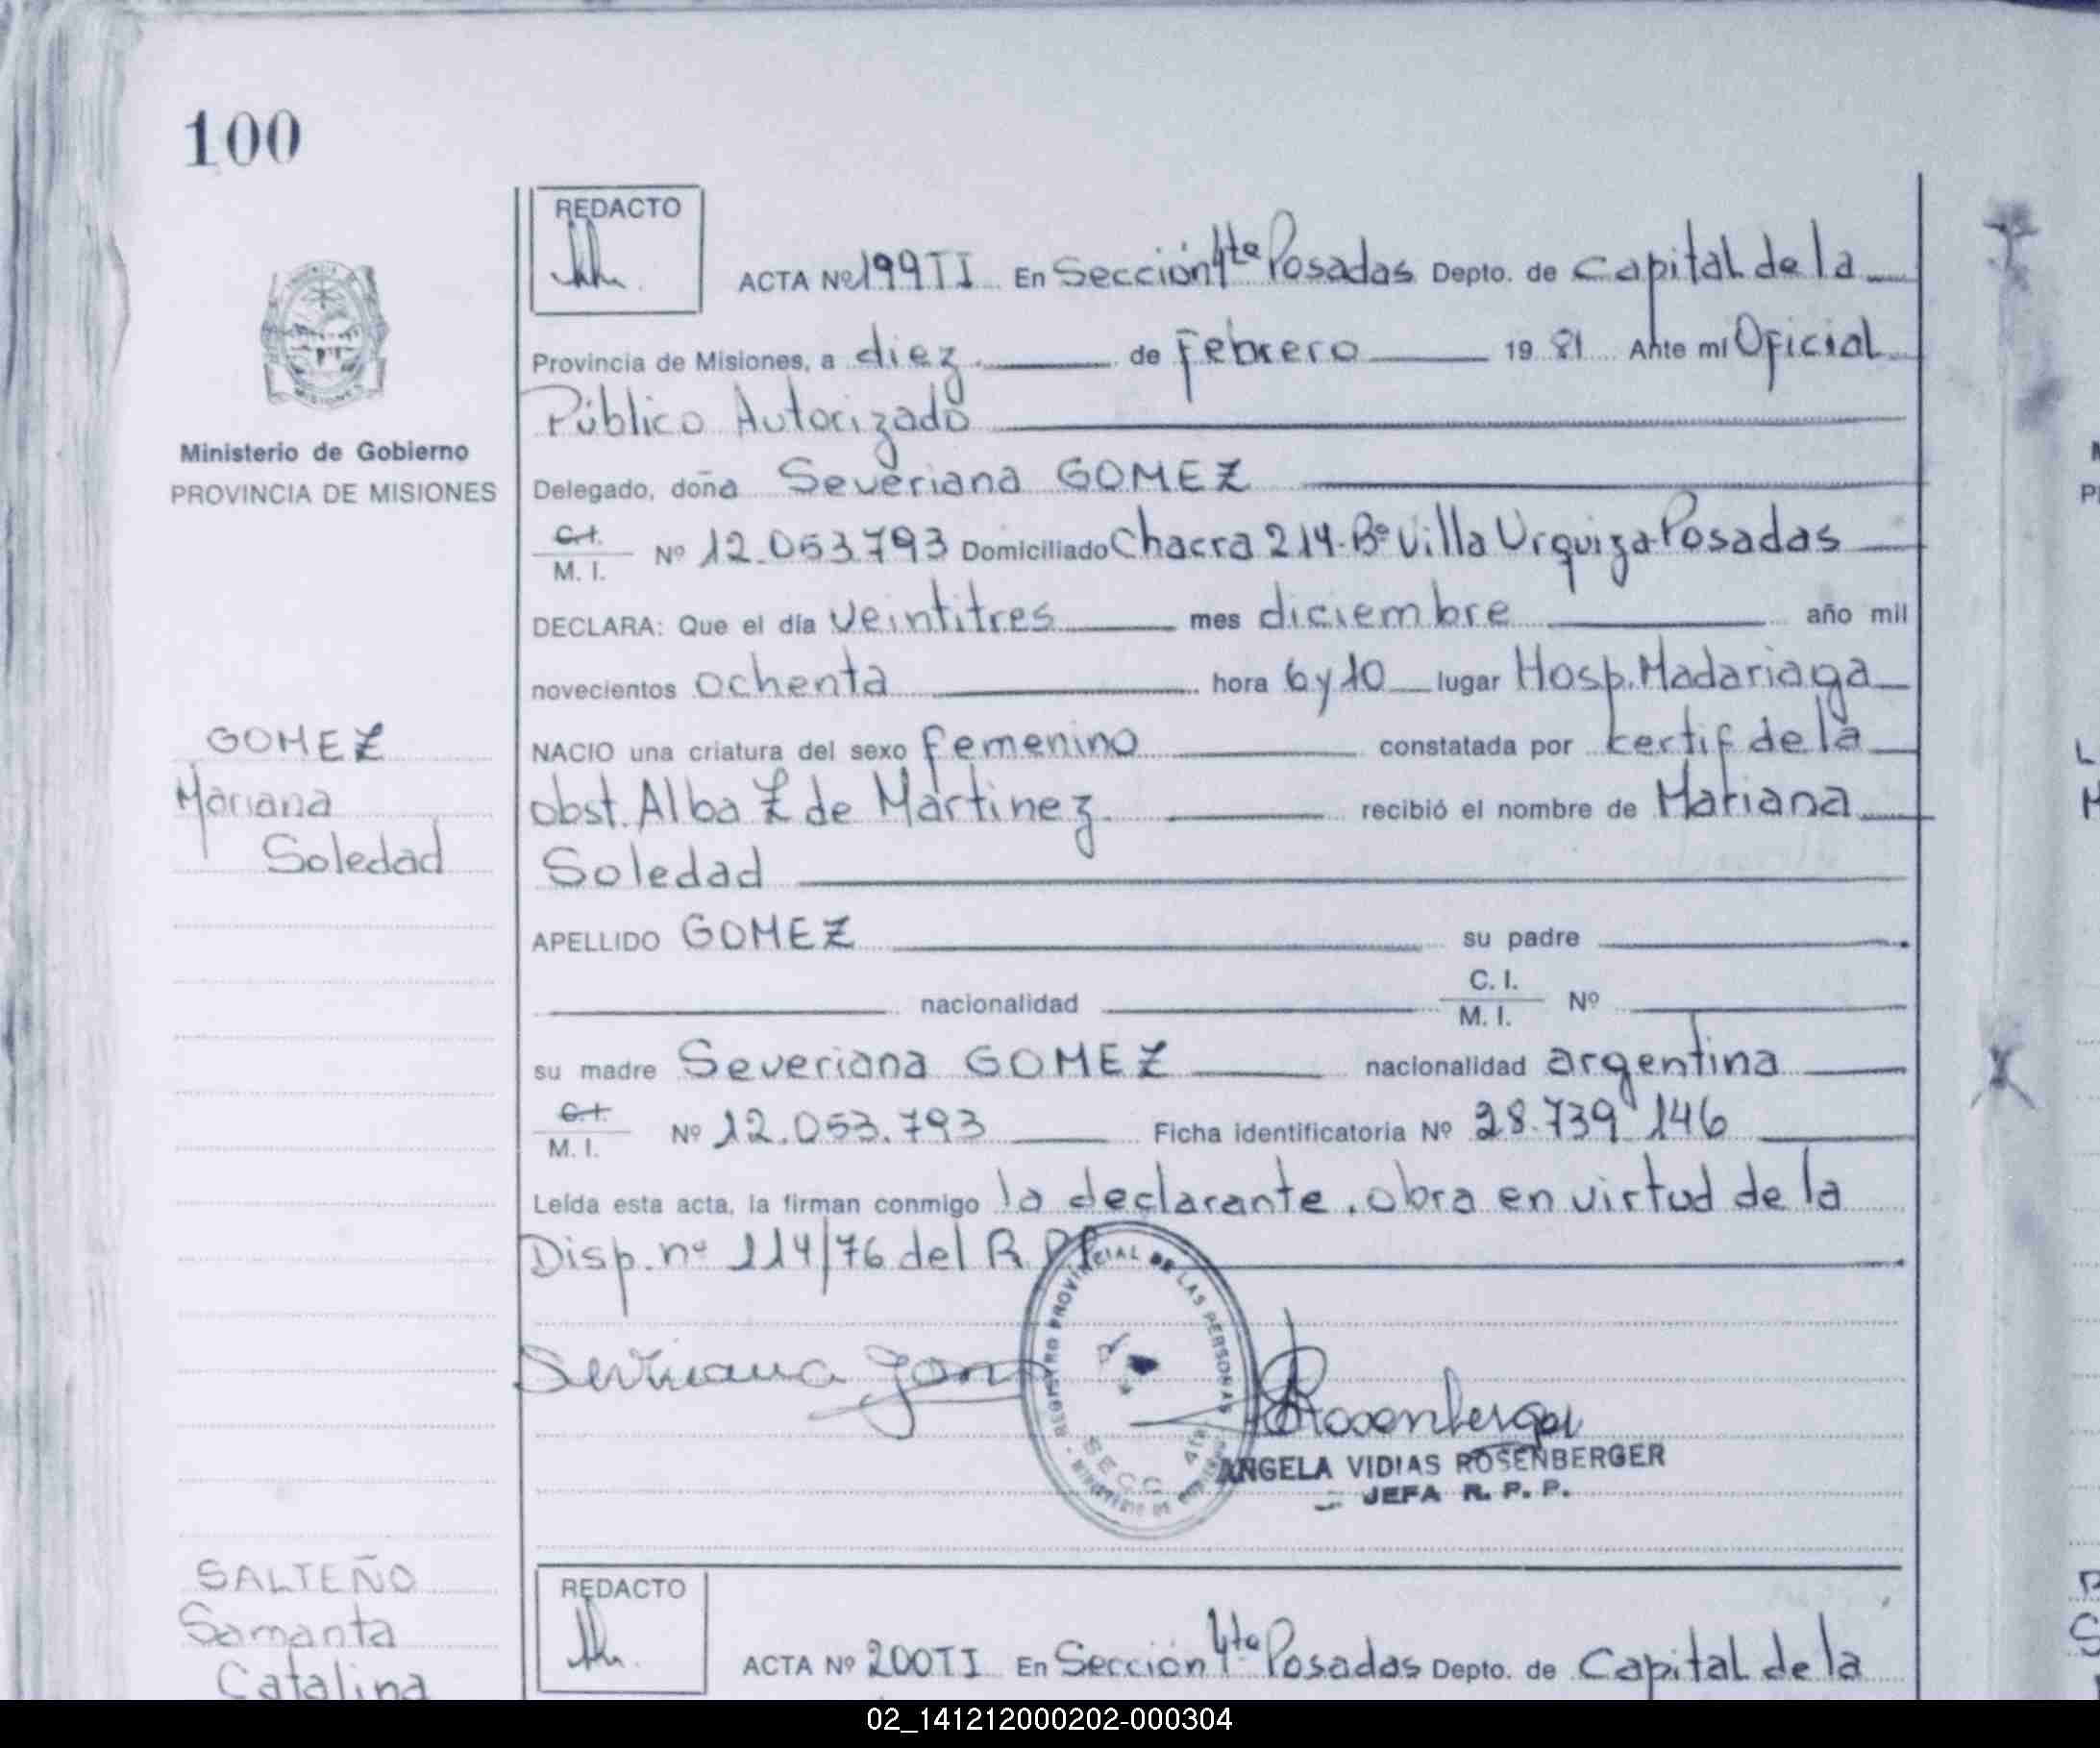 100
REDACTO
ACTA Nº 199TI En Sección 4ta Posadas Depto. de Capital de la
Provincia de Misiones, a diez de Febrero 19 81 Ante mi Oficial
Público Autorizado
Ministerio de Gobierno
PROVINCIA DE MISIONES
Delegado, doña Severiana GOMEZ
C.I.
M. I. Nº 12.053.793 Domiciliado Chacra 214-Bº Villa Urquiza-Posadas
DECLARA: Que el día veintitres mes diciembre año mil
novecientos ochenta hora 6 y 10 lugar Hosp. Madariaga
GOMEZ
Mariana
Soledad
NACIO una criatura del sexo femenino constatada por certif de la
obst. Alba Z de Martinez recibió el nombre de Mariana
Soledad
APELLIDO GOMEZ su padre
nacionalidad C. I.
M. I. Nº
su madre Severiana GOMEZ nacionalidad argentina
C.I.
M. I. Nº 12.053.793 Ficha identificatoria Nº 28.739.146
Leída esta acta, la firman conmigo la declarante, obra en virtud de la
Disp. nº 114/76 del R.P.P.
REGISTRO PROVINCIAL DE LAS PERSONAS
SECC 4ta
Severiana Gom
Rosenberger
ANGELA VIDIAS ROSENBERGER
JEFA R. P. P.
SALTEÑO
Samanta
Catalina
REDACTO
ACTA Nº 200TI En Sección 4ta Posadas Depto. de Capital de la
02_141212000202-000304